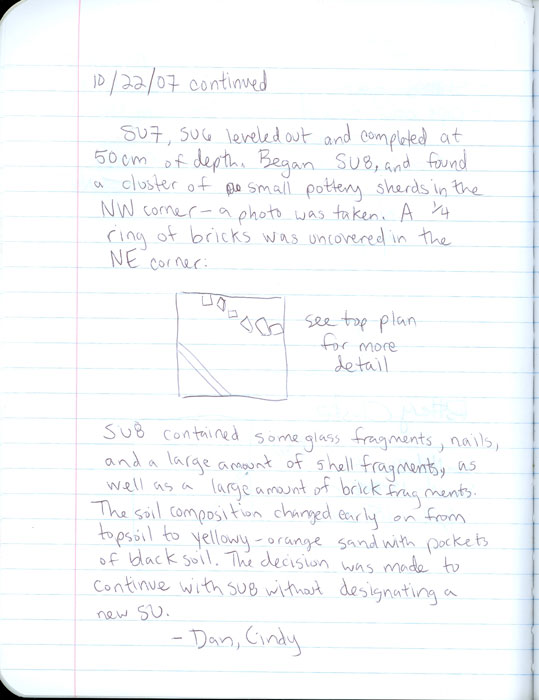 10/22/07 continued
SU7, SU6 leveled out and completed at
50cm of depth. Began SU8, and found
a cluster of small pottery sherds in the
NW corner - a photo was taken. A 1/4
ring of bricks was uncovered in the
NE corner:
see top plan
for more
detail
SU8 contained some glass fragments, nails,
and a large amount of shell fragments, as
well as a large amount of brick fragments.
The soil composition changed early on from
topsoil to yellowy-orange sand with pockets
of black soil. The decision was made to
continue with SU8 without designating a
new SU.
- Dan, Cindy